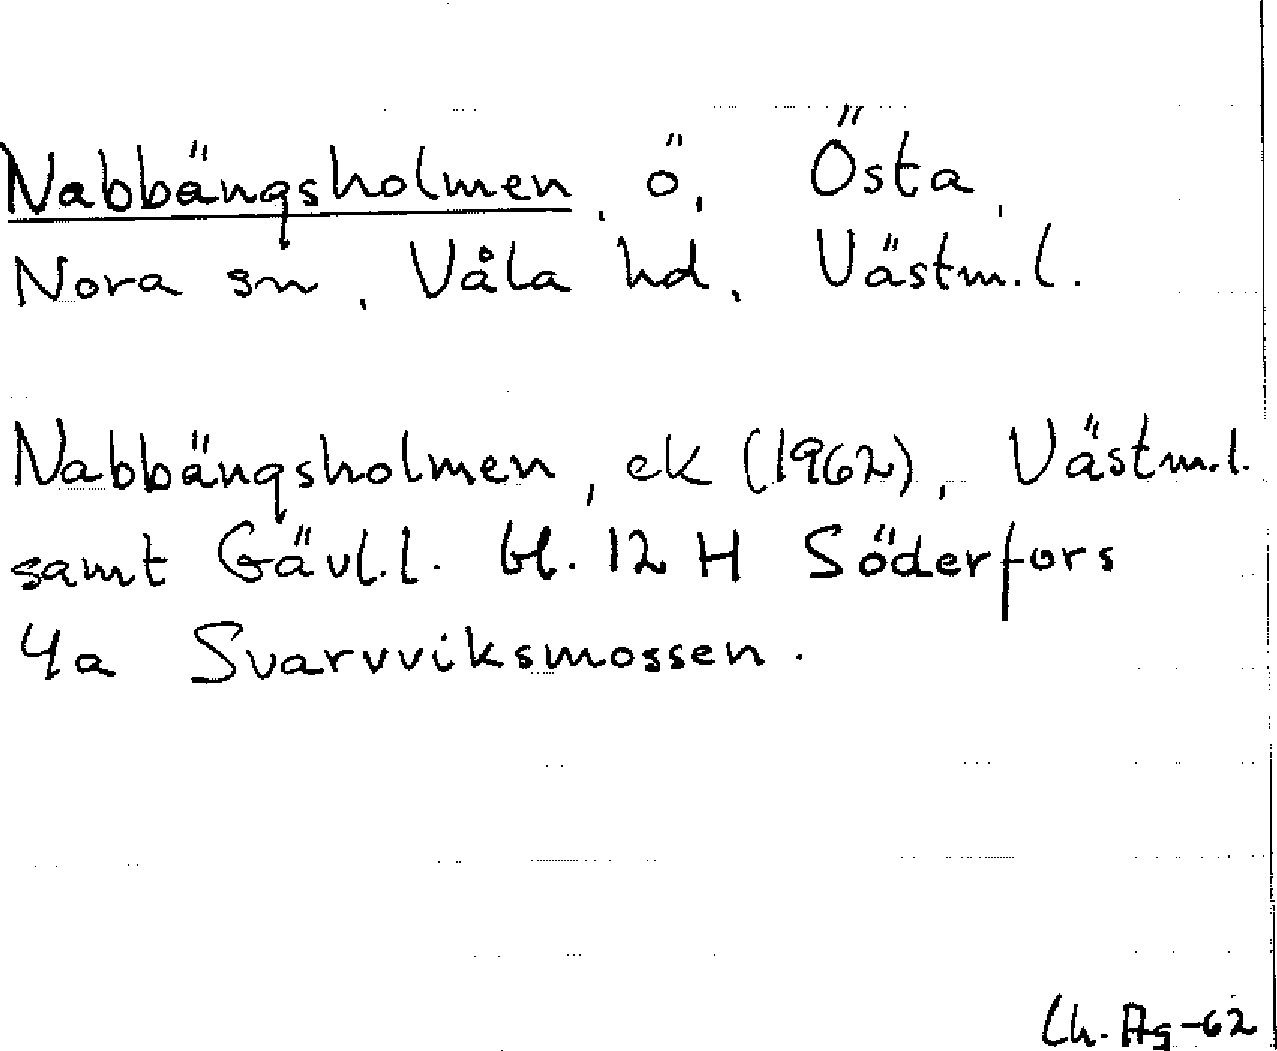 Nabbängsholmen, ö, Östa,
Nora sn, Våla hd, Västm.l.
Nabbängsholmen, ek (1962), Västm.l.
samt Gävl.l. bl. 12 H Söderfors
4a Svarvviksmossen.
Lh. Ag-62